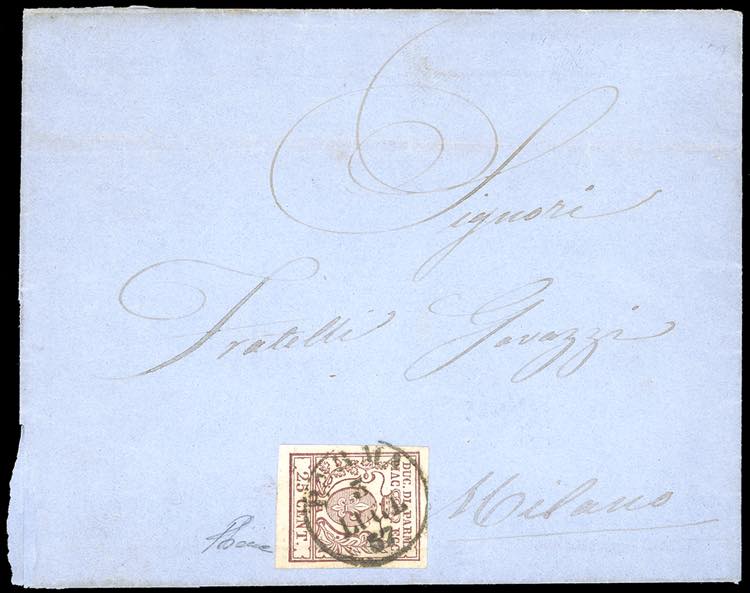 Signori
Fratelli Gavazzi
Milano
PARMA
3
LUGL
57
DUC. DI PARMA
PIAC. ECC.
25 CENT.